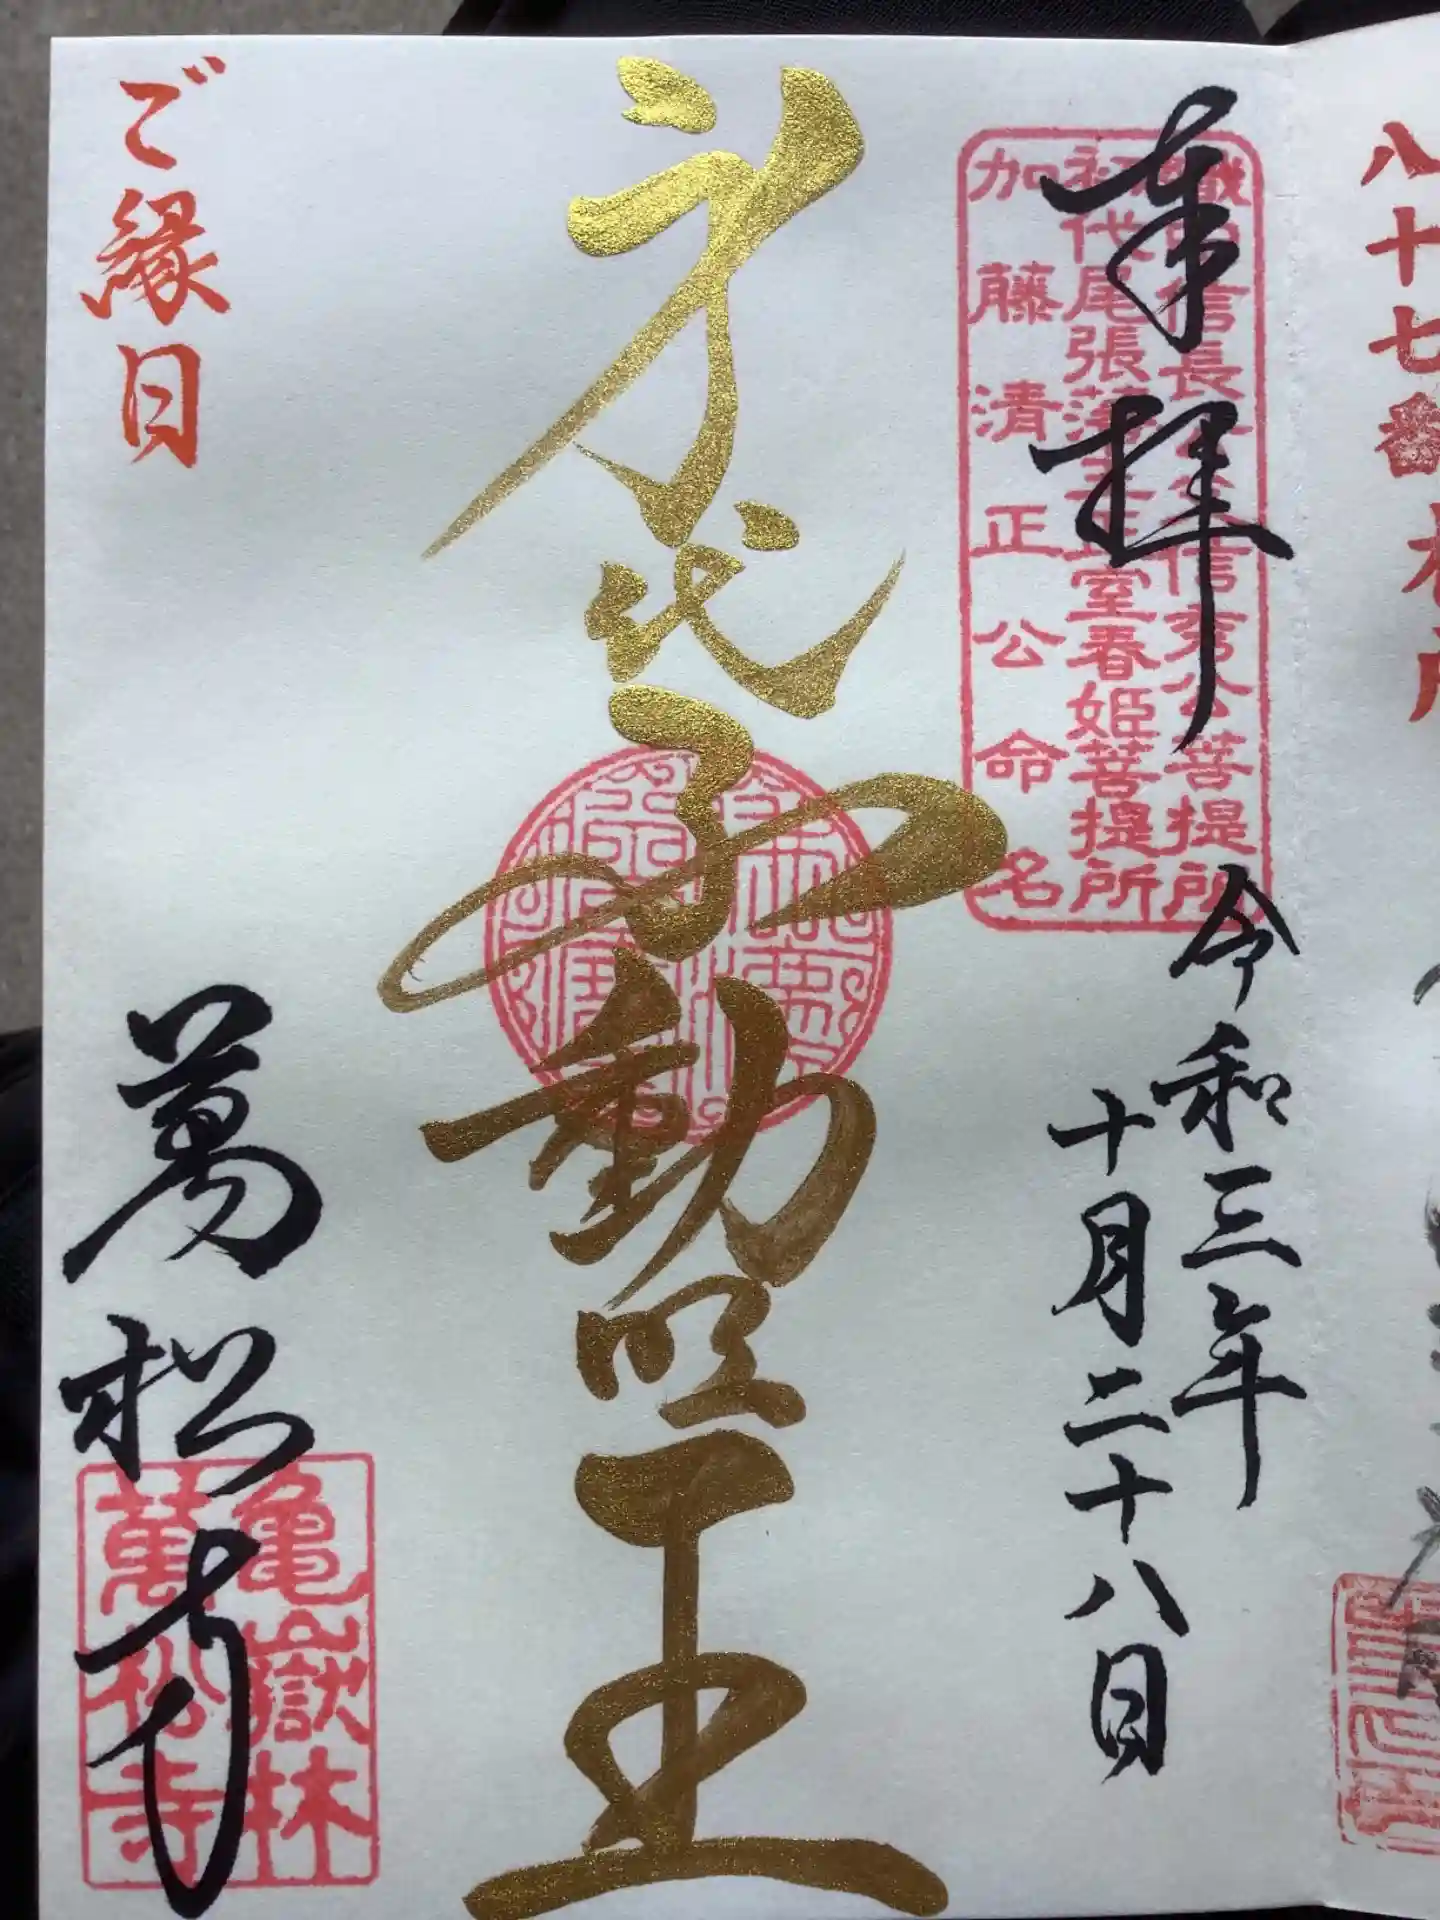 八十七番
奉拝
令和三年
十月二十八日
織田信長公父信秀公菩提所
初代尾張藩主正室春姫菩提所
加藤清正公命名
身代不動明王
ご縁日
萬松寺
亀嶽林
萬松寺